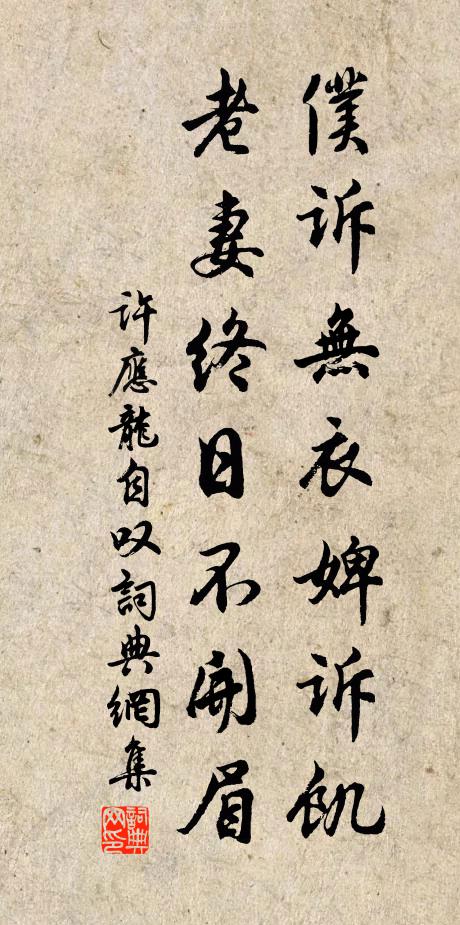 僕訴無衣婢訴飢
老妻終日不開眉
許應龍自叹詞典網集
詞典網印